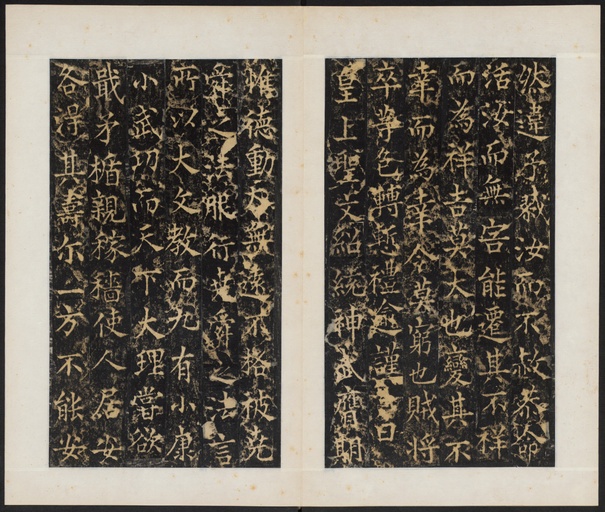 然違予戮汝而不赦恭命
活汝而無害能遷其不祥
而為祥吉莫大也變其不
幸而為幸令莫窮也賊將
卒等色轉慙禮愈謹益曰
皇上聖文紹統神武膺期
惟德動天無遠不格被堯
舜之法服行堯舜之法言
所以大文教而九有小康
小武功而天下大理嘗欲
戢矛楯親稼穡使人居安
各得其壽尔一方不能安